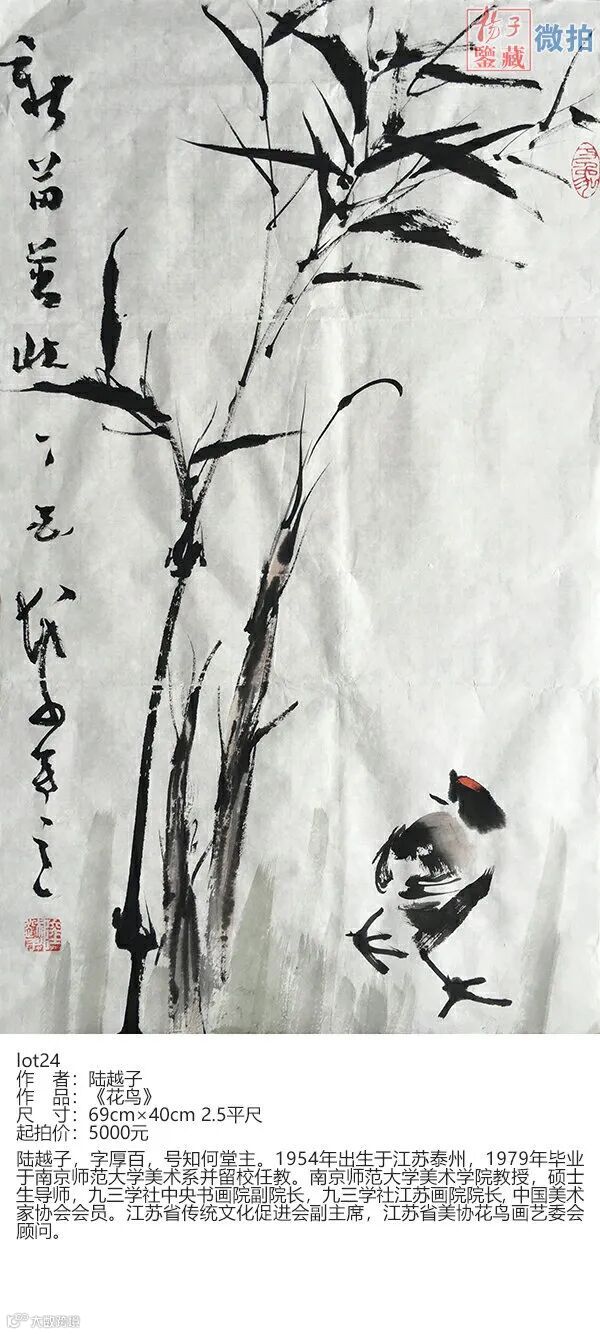 杨子
鉴藏
微拍
新苗
lot24
作 者：陆越子
作 品：《花鸟》
尺 寸：69cm×40cm 2.5平尺
起拍价：5000元
陆越子，字厚百，号知何堂主。1954年出生于江苏泰州，1979年毕业
于南京师范大学美术系并留校任教。南京师范大学美术学院教授，硕士
生导师，九三学社中央书画院副院长，九三学社江苏画院院长, 中国美术
家协会会员。江苏省传统文化促进会副主席，江苏省美协花鸟画艺委会
顾问。